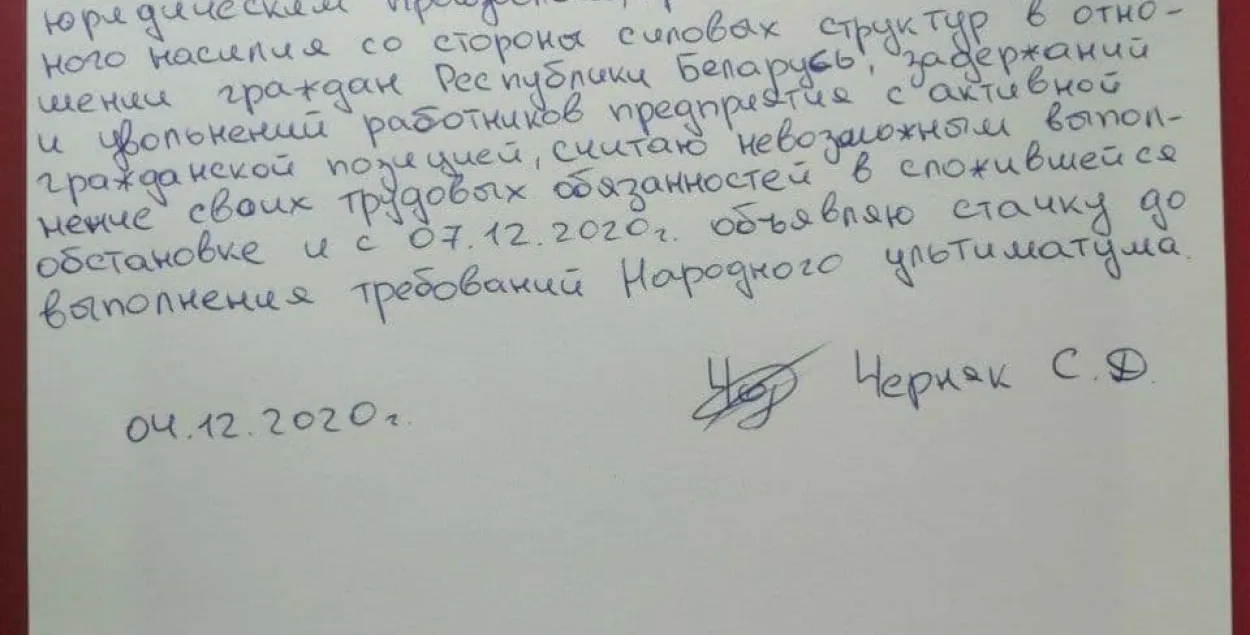 юридическим
ного насилия со стороны силовых структур в отно-
шении граждан Республики Беларусь, задержаний
и увольнений работников предприятия с активной
гражданской позицией, считаю невозможным выпол-
нение своих трудовых обязанностей в сложившейся
обстановке и с 07.12.2020г. объявляю стачку до
выполнения требований Народного ультиматума.
Черняк С.Д.
04.12.2020г.